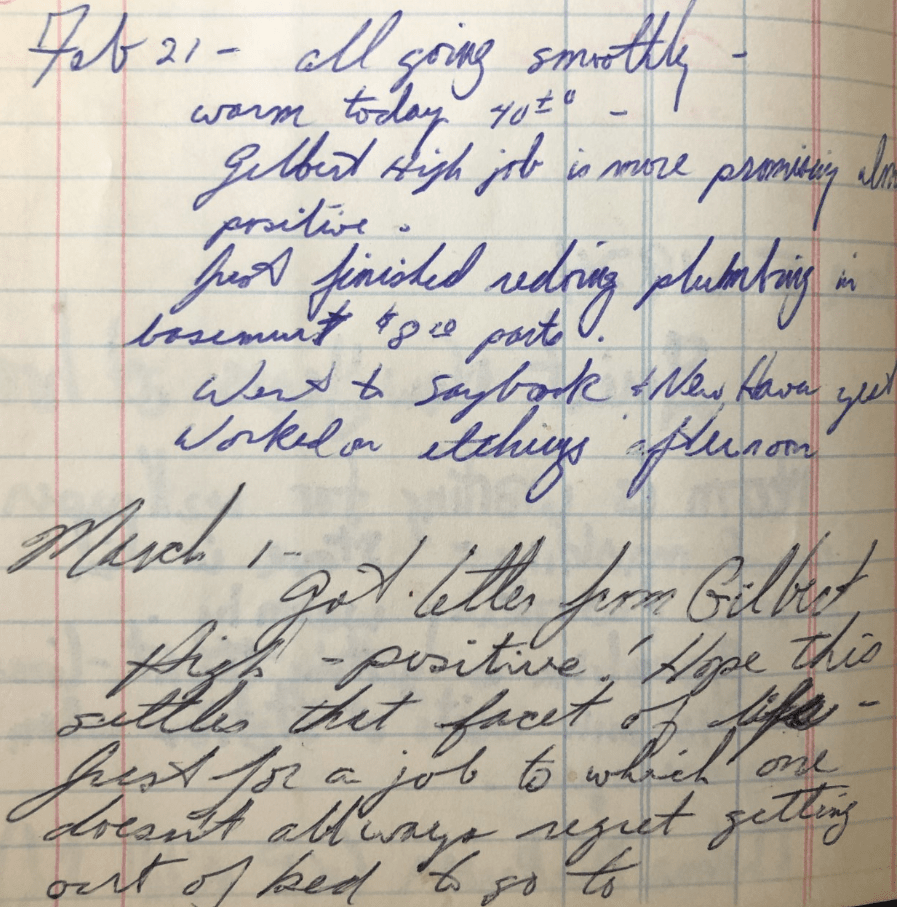 Feb 21 - all going smoothly -
warm today 40±° -
Gilbert High job is more promising alm
positive.
Just finished redoing plumbing in
basement $8.00 parts.
Went to Saybrook & New Haven yest
Worked on etchings afternoon
March 1 -
Got letter from Gilbert
High - positive! Hope this
settles that facet of life -
Just for a job to which one
doesn't allways regret getting
out of bed to go to